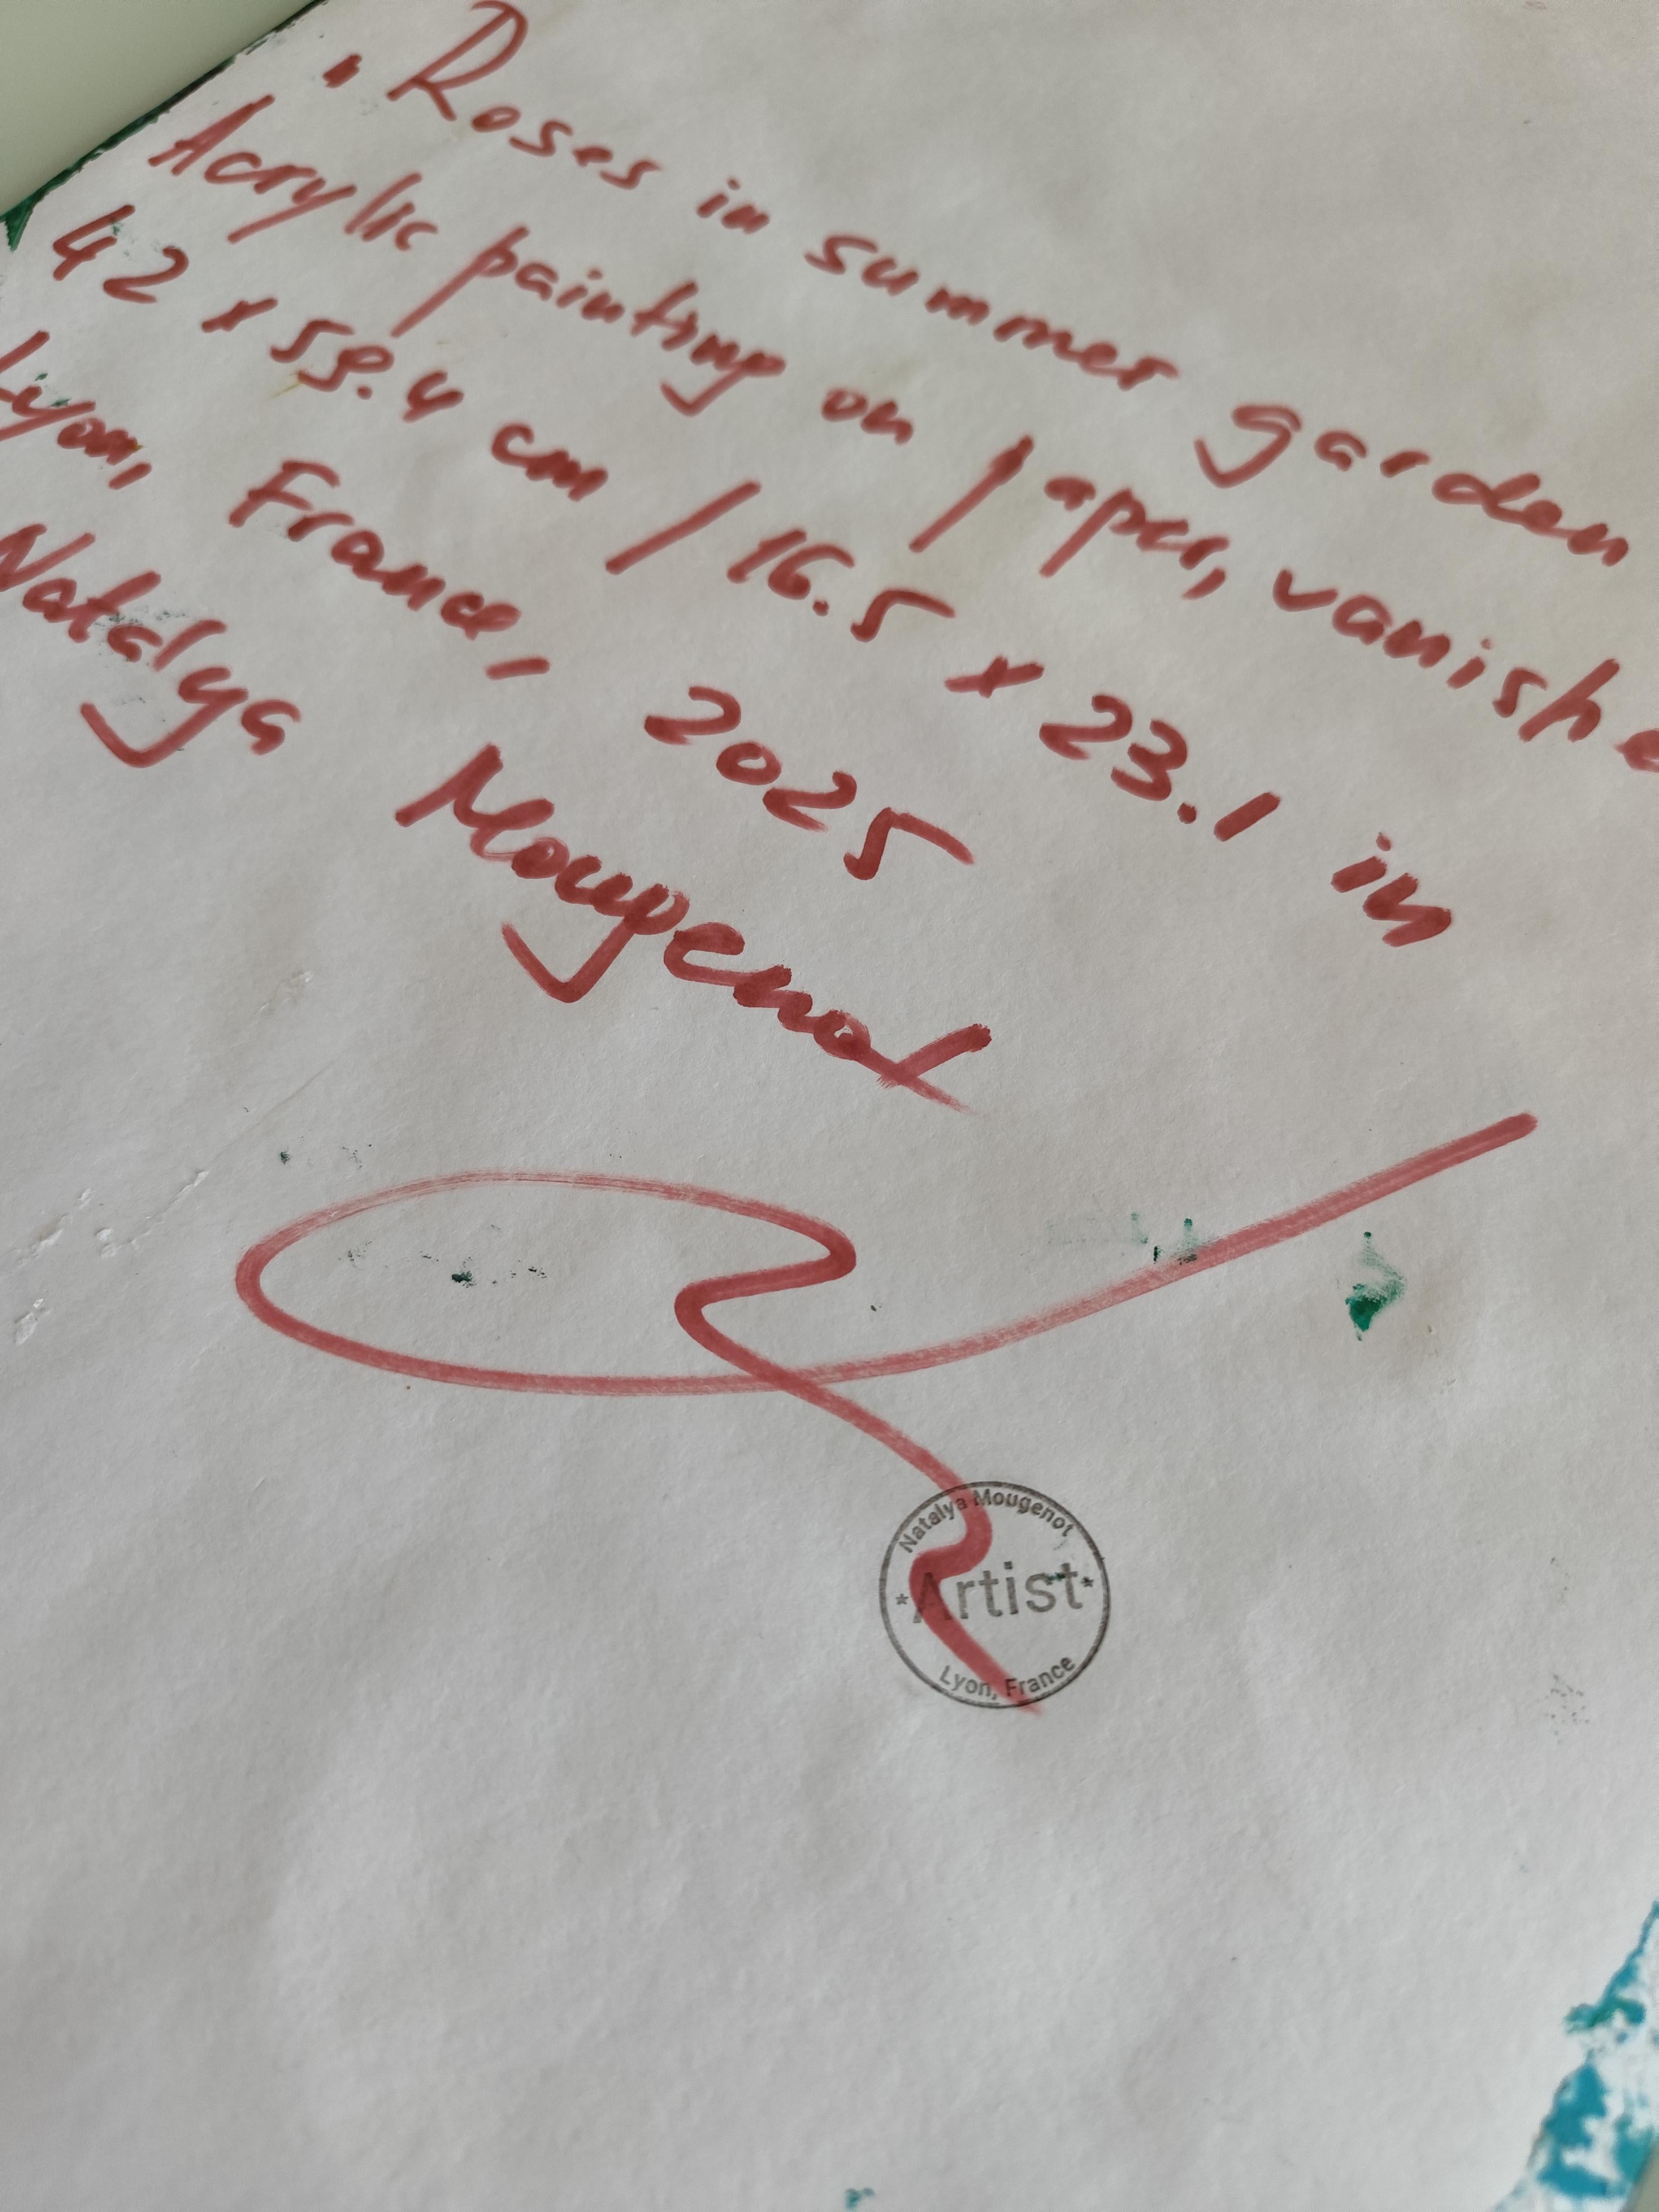 "Roses in summer garden
Acrylic painting on paper, vanishe
42 x 59.4 cm / 16.5 x 23.1 in
Lyon, France, 2025
Natalya Mougenot
Natalya Mougenot
*Artist*
Lyon, France